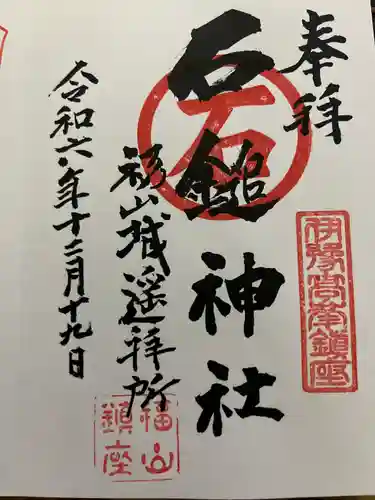 奉拝
伊豫高峯鎮座
石鎚神社
石
杉山城遥拝所
福山
鎮座
令和六年十二月十九日